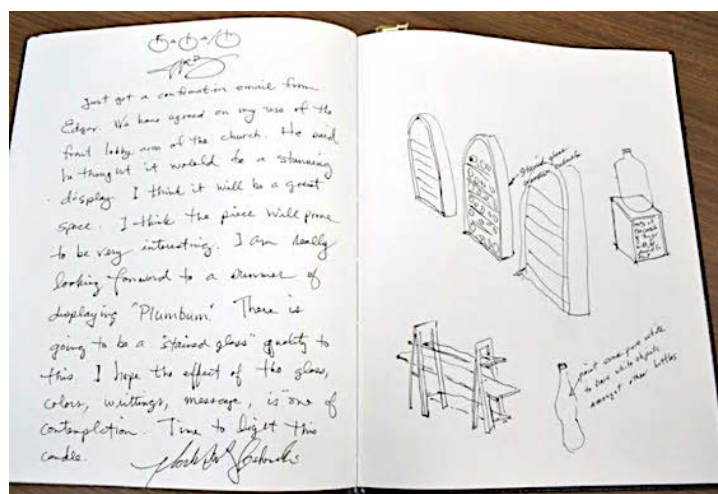 Just got a confirmation email from
Edgar. We have agreed on my use of the
front lobby area of the church. He said
he thought it would be a stunning
display. I think it will be a great
space. I think the piece will prove
to be very interesting. I am really
looking forward to a summer of
displaying "Plumbum." There is
going to be a "stained glass" quality to
this. I hope the effect of the glass,
colors, writings, message, is one of
contemplation. Time to light this
candle.
Stained glass
paint some pure white
to have white objects
amongst other bottles